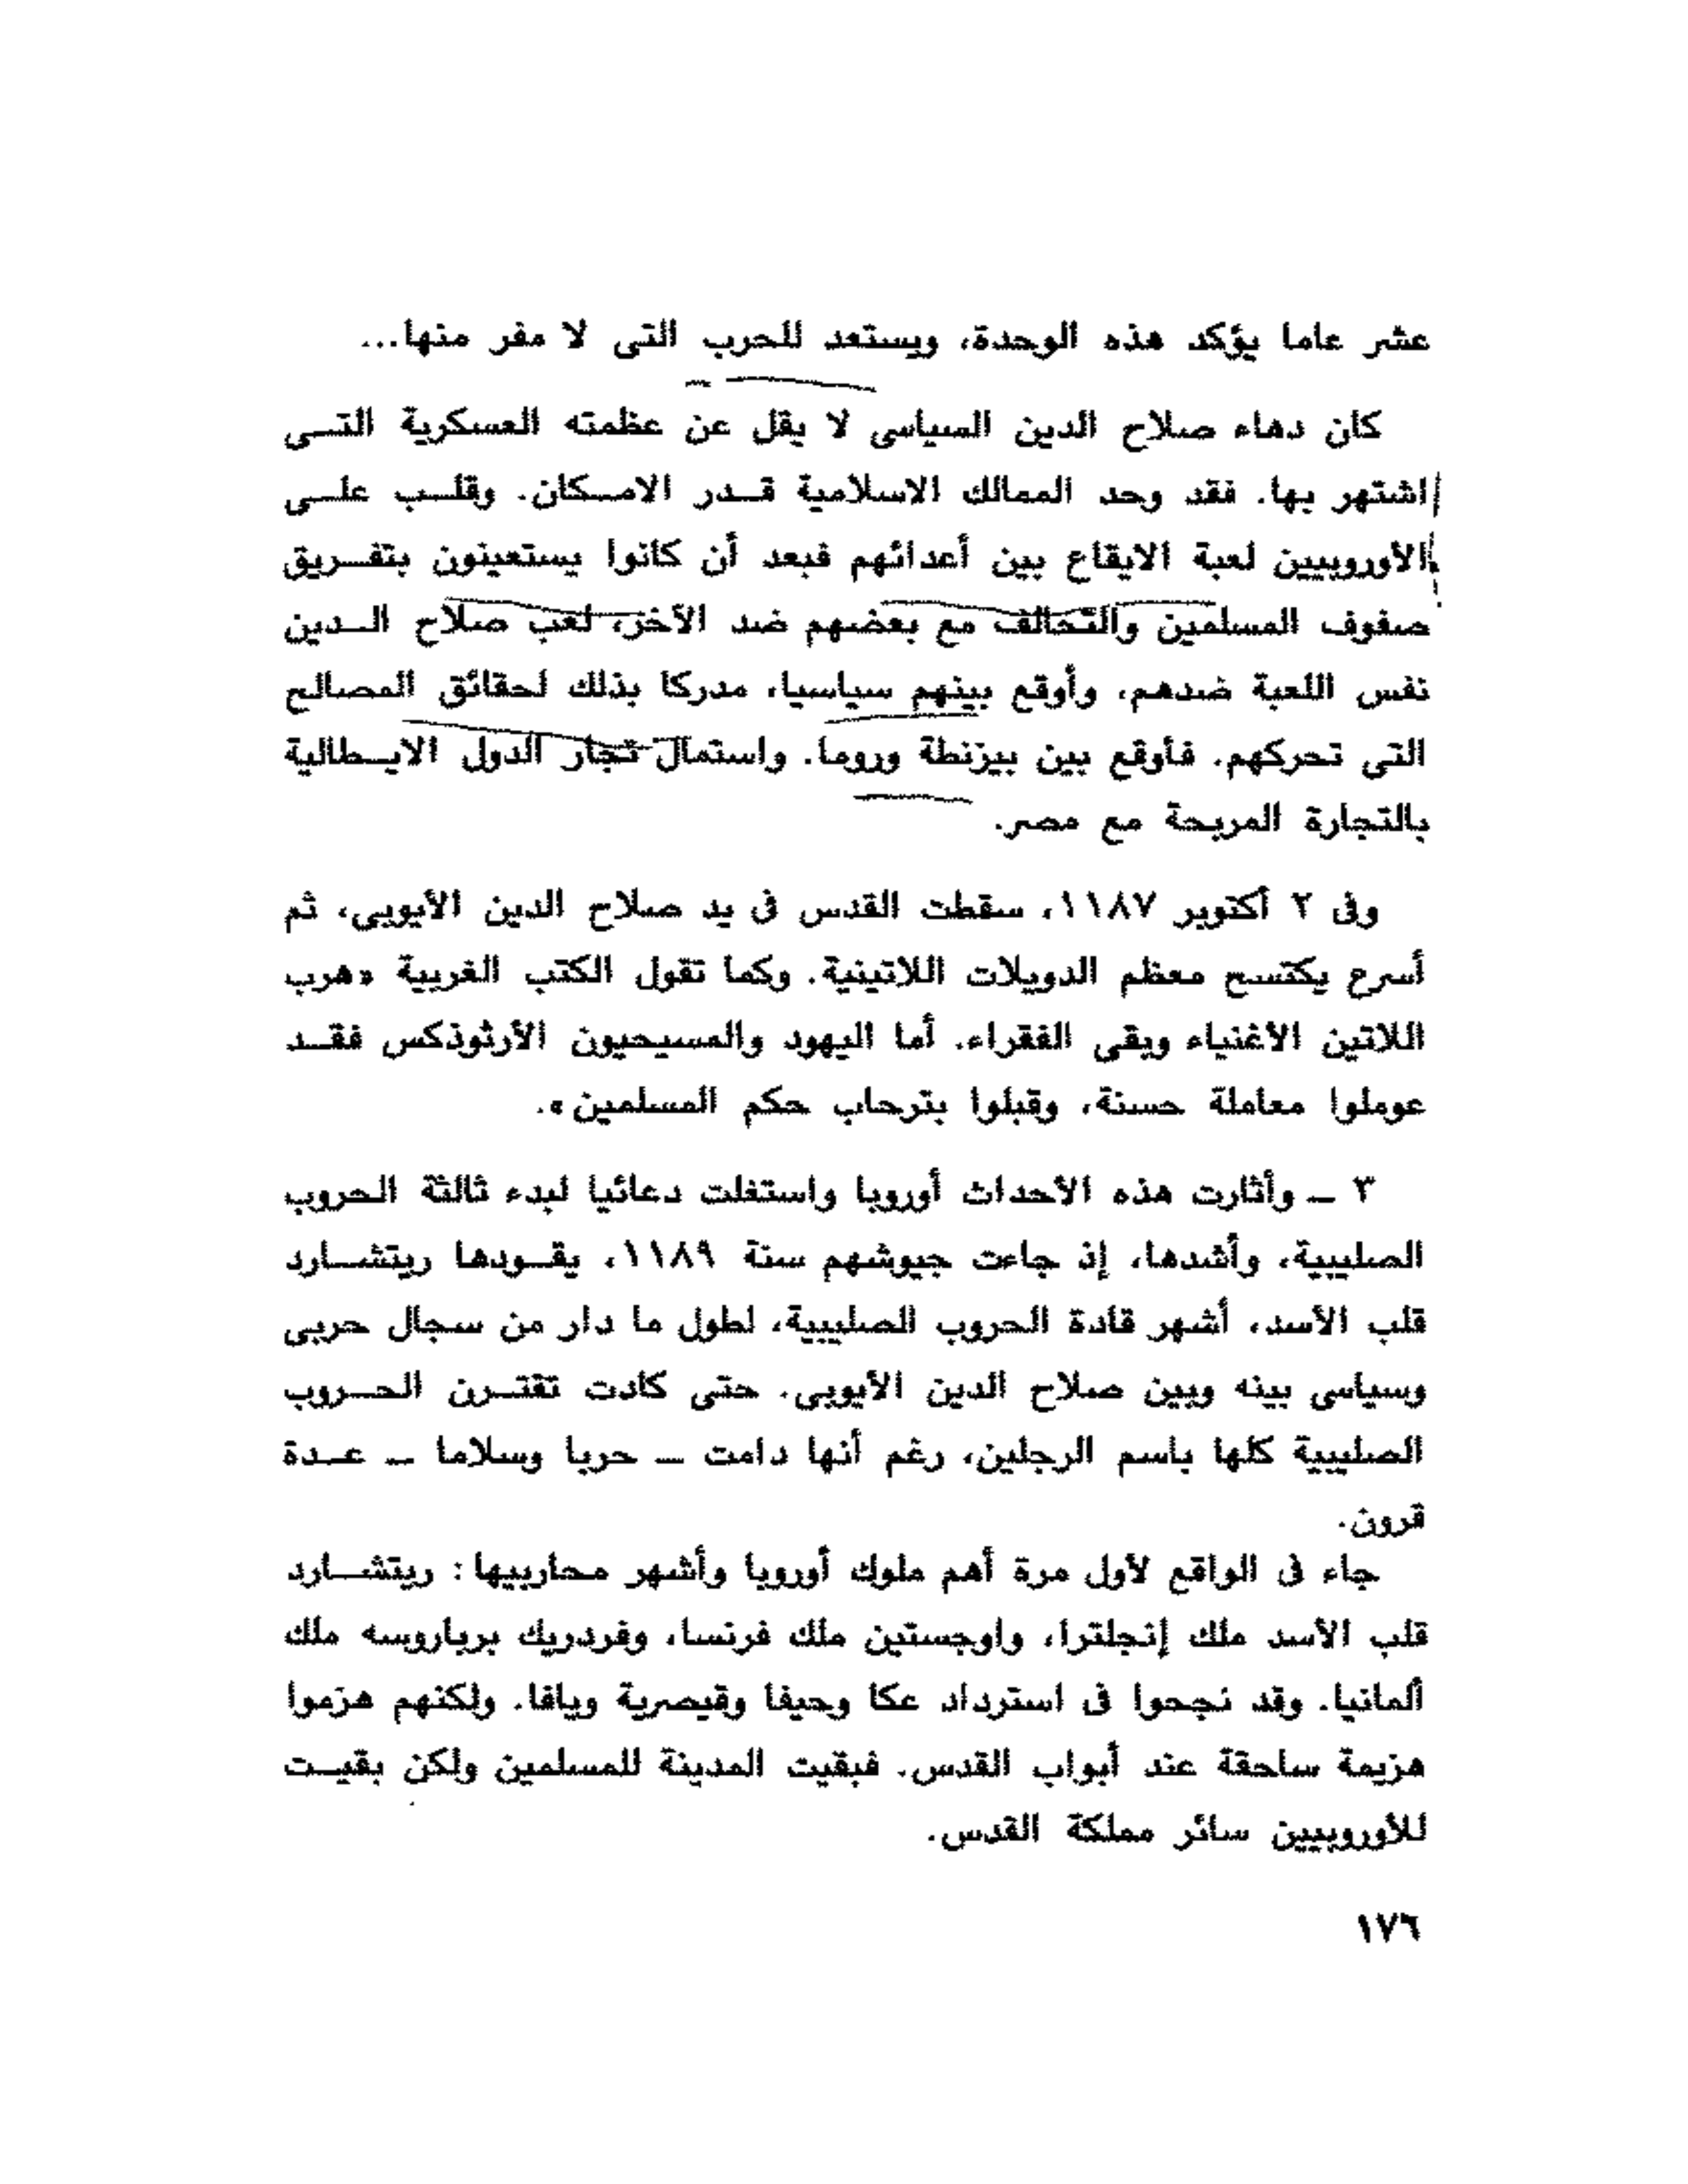 عشر عاما يؤكد هذه الوحدة، ويستعد للحرب التى لا مفر منها...
كان دهاء صلاح الدين السياسى لا يقل عن عظمته العسكرية التـى
اشتهر بها. فقد وحد الممالك الاسلامية قـدر الامـكان. وقلـب علـى
الأوروبيين لعبة الايقاع بين أعدائهم فبعد أن كانوا يستعينون بتفـريق
صفوف المسلمين والتحالف مع بعضهم ضد الآخر، لعب صلاح الـدين
نفس اللعبة ضدهم، وأوقع بينهم سياسيا، مدركا بذلك لحقائق المصالح
التى تحركهم. فأوقع بين بيزنطة وروما. واستمال تجار الدول الايـطالية
بالتجارة المربحة مع مصر.
وفى ٢ أكتوبر ١١٨٧، سقطت القدس فى يد صلاح الدين الأيوبى، ثم
أسرع يكتسح معظم الدويلات اللاتينية. وكما تقول الكتب الغربية «هرب
اللاتين الأغنياء وبقى الفقراء. أما اليهود والمسيحيون الأرثوذكس فقـد
عوملوا معاملة حسنة، وقبلوا بترحاب حكم المسلمين».
٣ ــ وأثارت هذه الأحداث أوروبا واستغلت دعائيا لبدء ثالثة الحروب
الصليبية، وأشدها، إذ جاءت جيوشهم سنة ١١٨٩، يقـودها ريتشـارد
قلب الأسد، أشهر قادة الحروب الصليبية، لطول ما دار من سجال حربى
وسياسى بينه وبين صلاح الدين الأيوبى. حتى كادت تقتـرن الحـروب
الصليبية كلها باسم الرجلين، رغم أنها دامت ــ حربا وسلاما ــ عـدة
قرون.
جاء فى الواقع لأول مرة أهم ملوك أوروبا وأشهر محاربيها: ريتشـارد
قلب الأسد ملك إنجلترا، واوجستين ملك فرنسا، وفردريك برباروسه ملك
ألمانيا. وقد نجحوا فى استرداد عكا وحيفا وقيصرية ويافا. ولكنهم هزموا
هزيمة ساحقة عند أبواب القدس. فبقيت المدينة للمسلمين ولكن بقيـت
للأوروبيين سائر مملكة القدس.
١٧٦